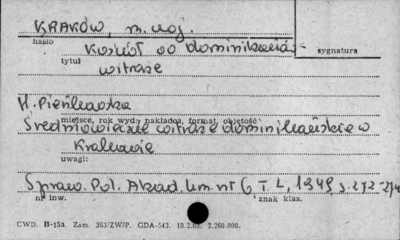 KRAKÓW, m. woj.
hasło
Kościół oo dominikanów
sygnatura
tytuł
witraże
H. Pieńkowska
miejsce, rok wyd., nakładca, format, objętość
Średniowieczne witraże dominikańskie w
Krakowie
uwagi:
Spraw. Pol. Akad. Um. nr 6 T. L, 1949, s. 272-274
nr inw.
znak klas.
CWD. B-15a. Zam. 363/ZW/P. GDA-543. 19.2.62. 2.260.000.